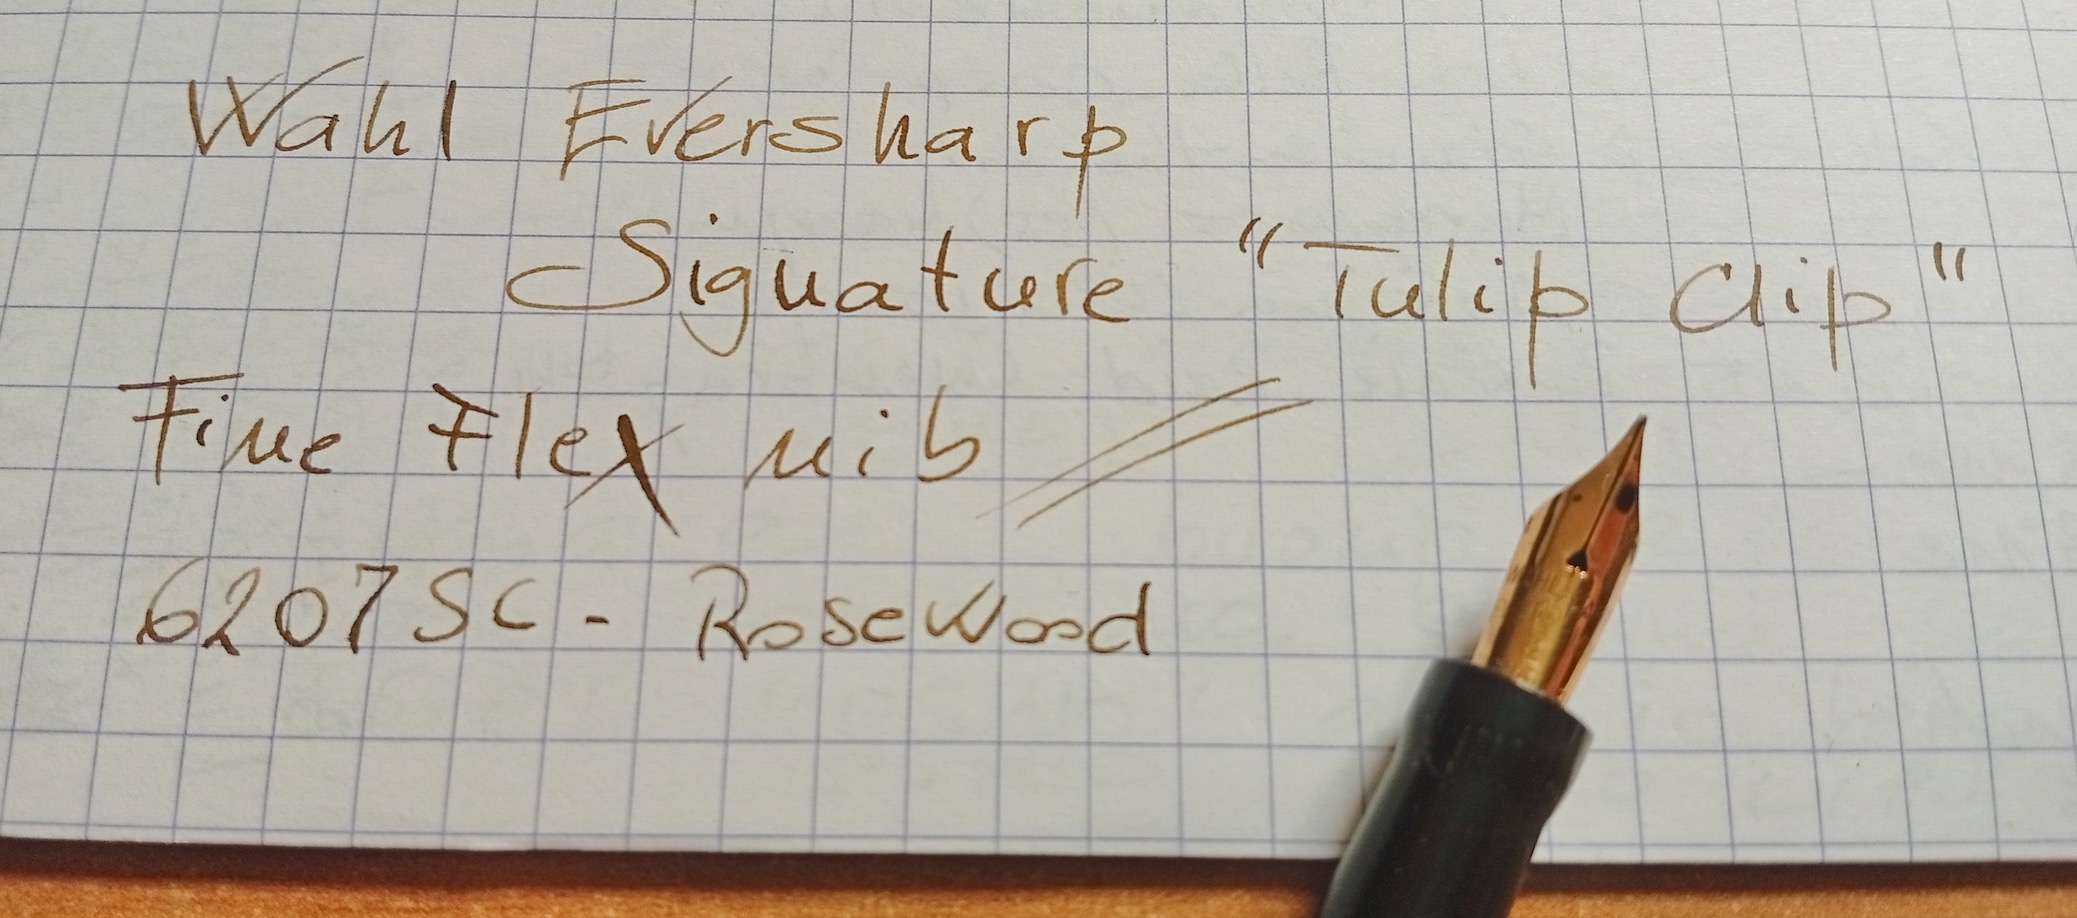 Wahl Eversharp
Signature "Tulip Clip"
Fine Flex nib
6207SC - RoseWood